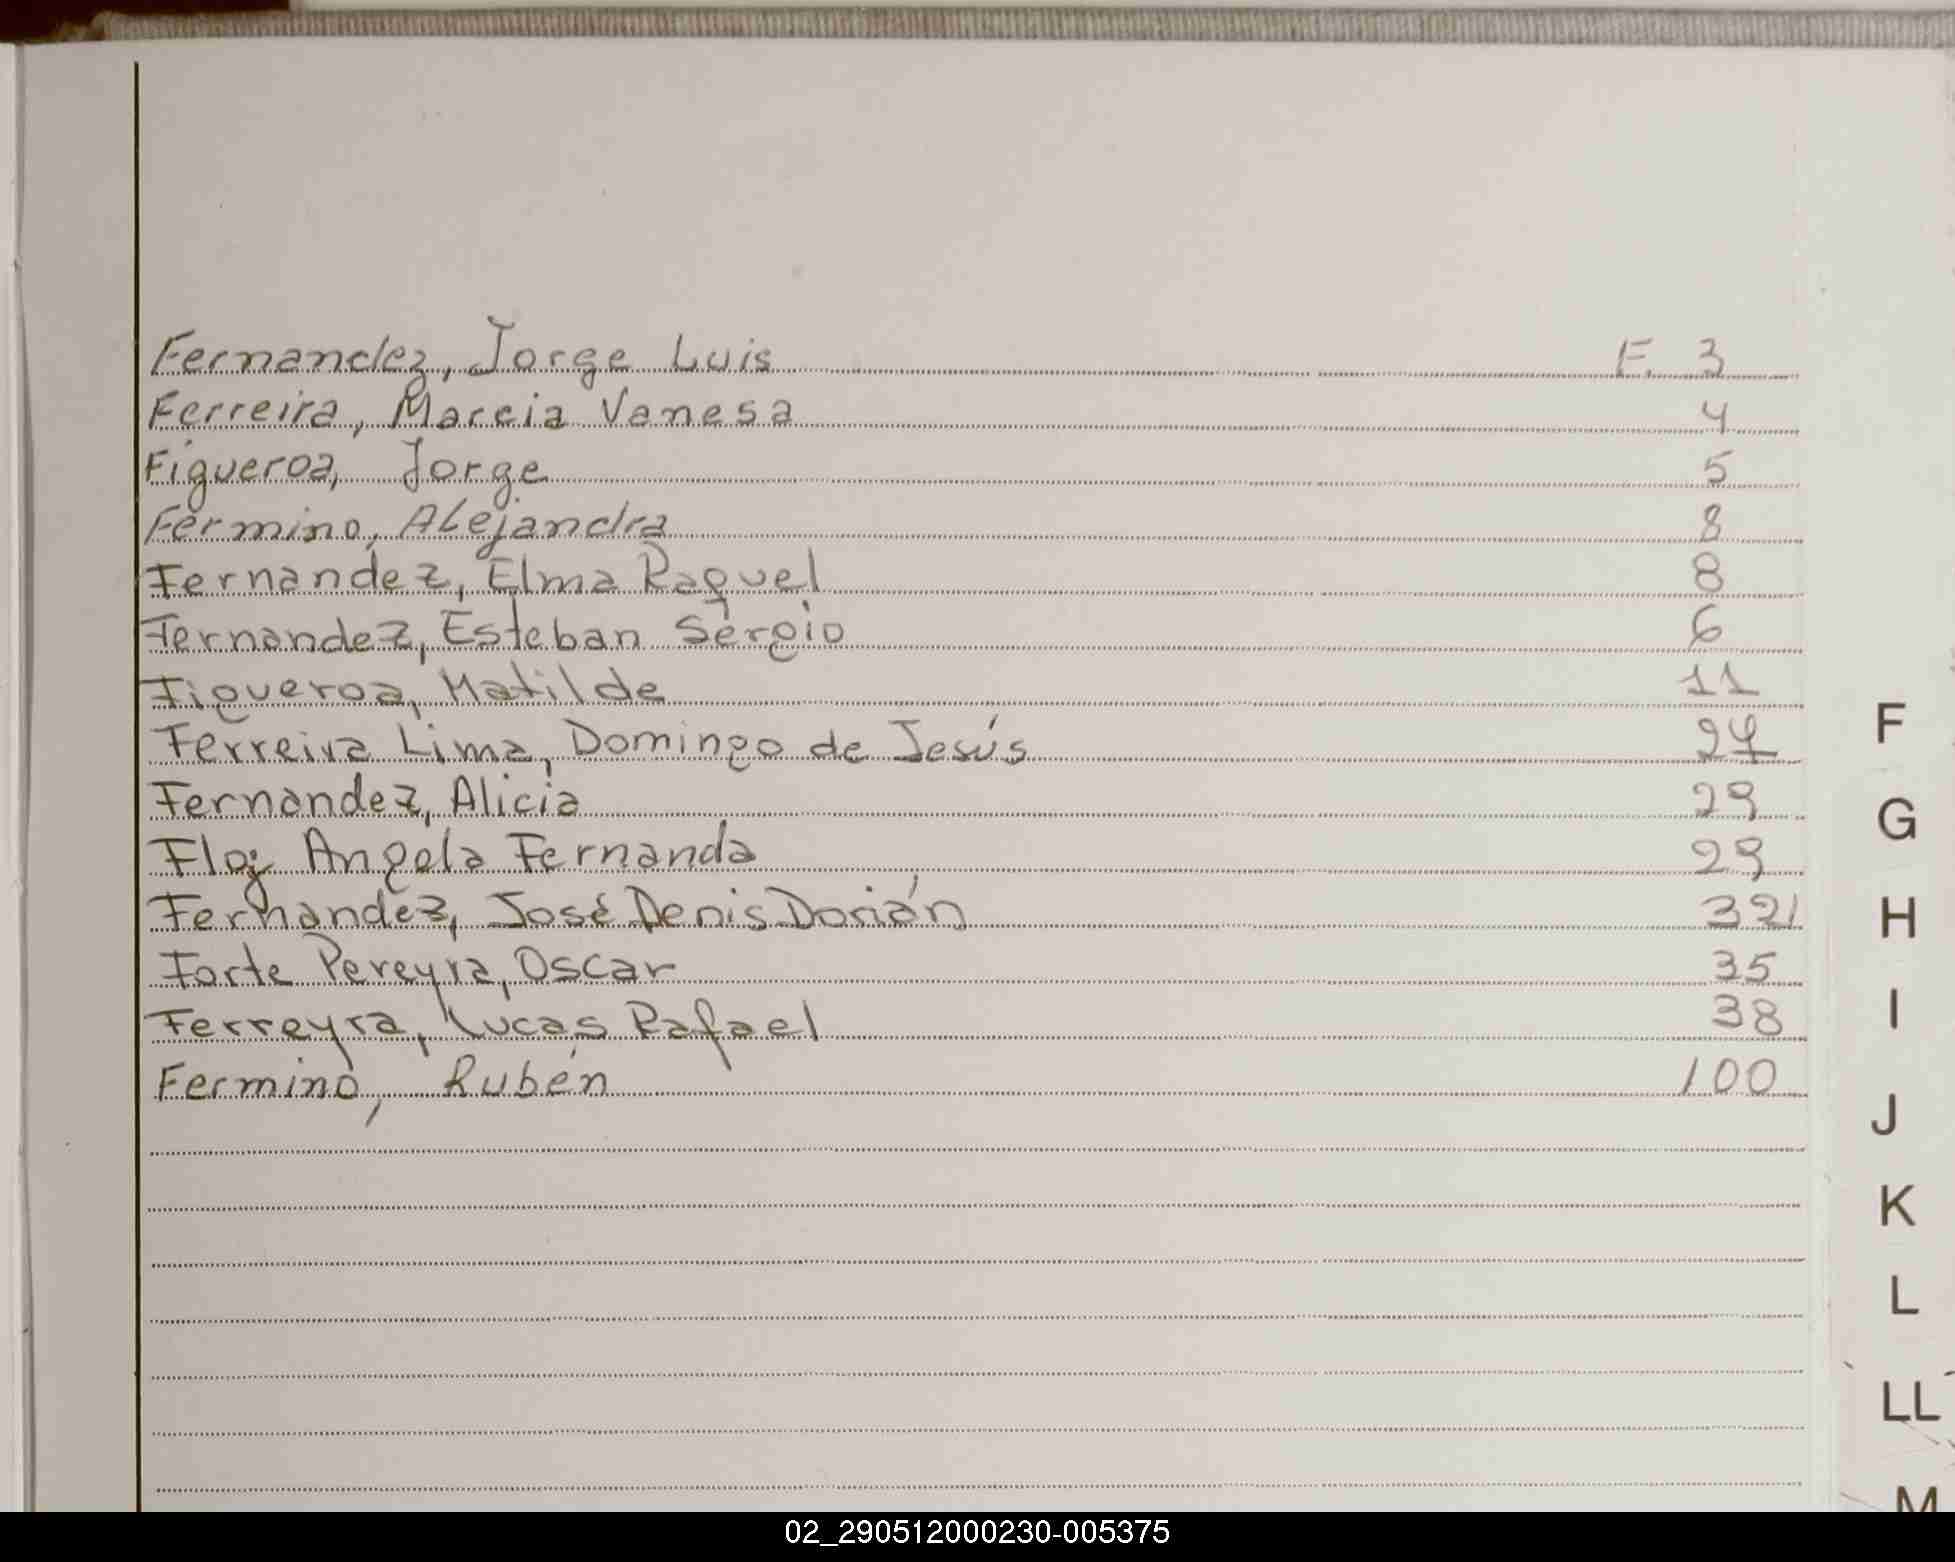 Fernandez, Jorge Luis F. 3
Ferreira, Marcia Vanesa 4
Figueroa, Jorge 5
Fermino, Alejandra 8
Fernandez, Elma Raquel 8
Fernandez, Esteban Sergio 6
Figueroa, Matilde 11
Ferreira Lima, Domingo de Jesús 24
Fernandez, Alicia 29
Angela Fernanda 29
Fernandez, José Denis Dorián 321
Forte Pereyra, Oscar 35
Ferreyra, Lucas Rafael 38
Fermino, Rubén 100
F
G
H
I
J
K
L
LL
M
02_290512000230-005375